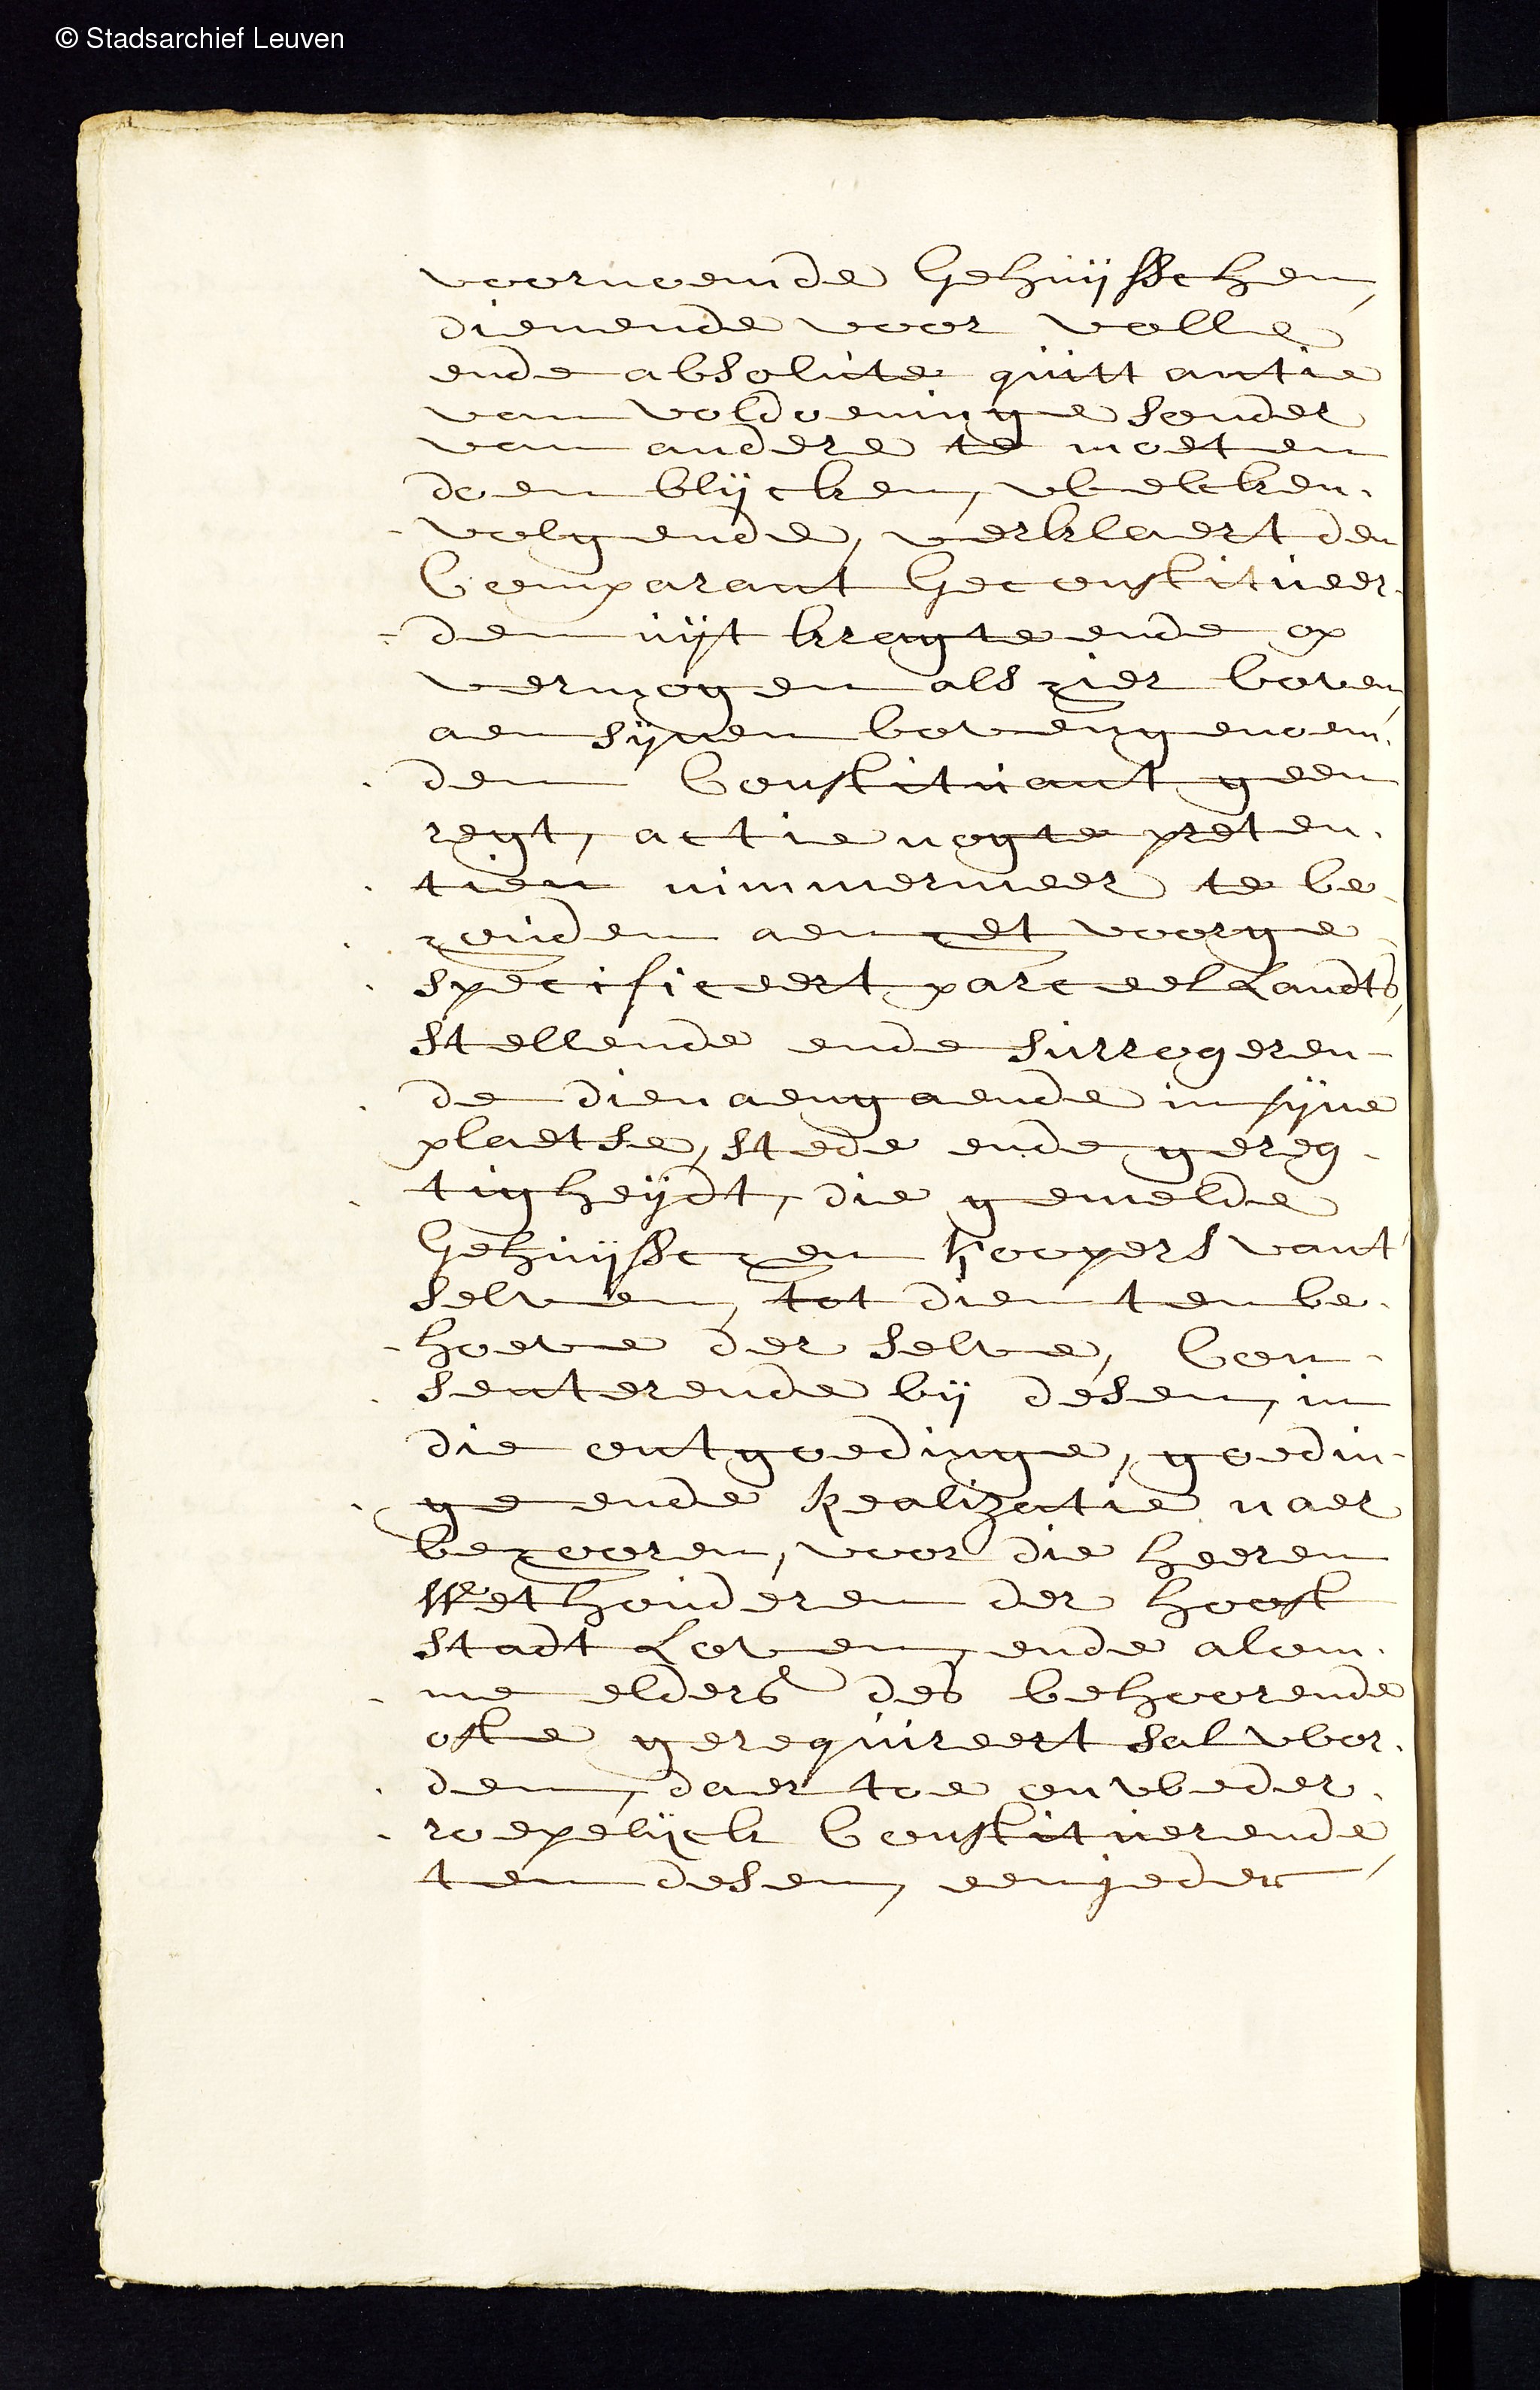 © Stadsarchief Leuven
voornoemde Gehuijsschen,
dienende voor volle
ende absolute quittantie
van voldoeninge sonder
van andere te moeten
doen blijcken, welcken.
volgende, verklaert den
Comparant Geconstitueer.
den uijt kragte ende op
vermogen als hier boven,
aen sijnen bovengenoem.
den Constituant geen
regt, actie nogte preten.
tien nimmermeer te be.
houden aen het voorge
specificeert parceel Landts,
stellende ende surrogeren-
de dien aengaende in sijne
plaetse, stede ende gereg.
tigheijdt, die gemelde
Gehuijsschen Koopers vant
selven, tot dien ten be.
hoeve der selve, Con.
senterende bij desen, in
die ontgoedinge, goedin-
ge ende Realizatie naer
behooren, voor die heeren
Wethouderen der hooft
stadt Loven, ende alom.
me elders des behoorende
ofte gerequireert sal wor.
den, daer toe onweder.
roepelijck Constituerende
ten desen, eenjeder